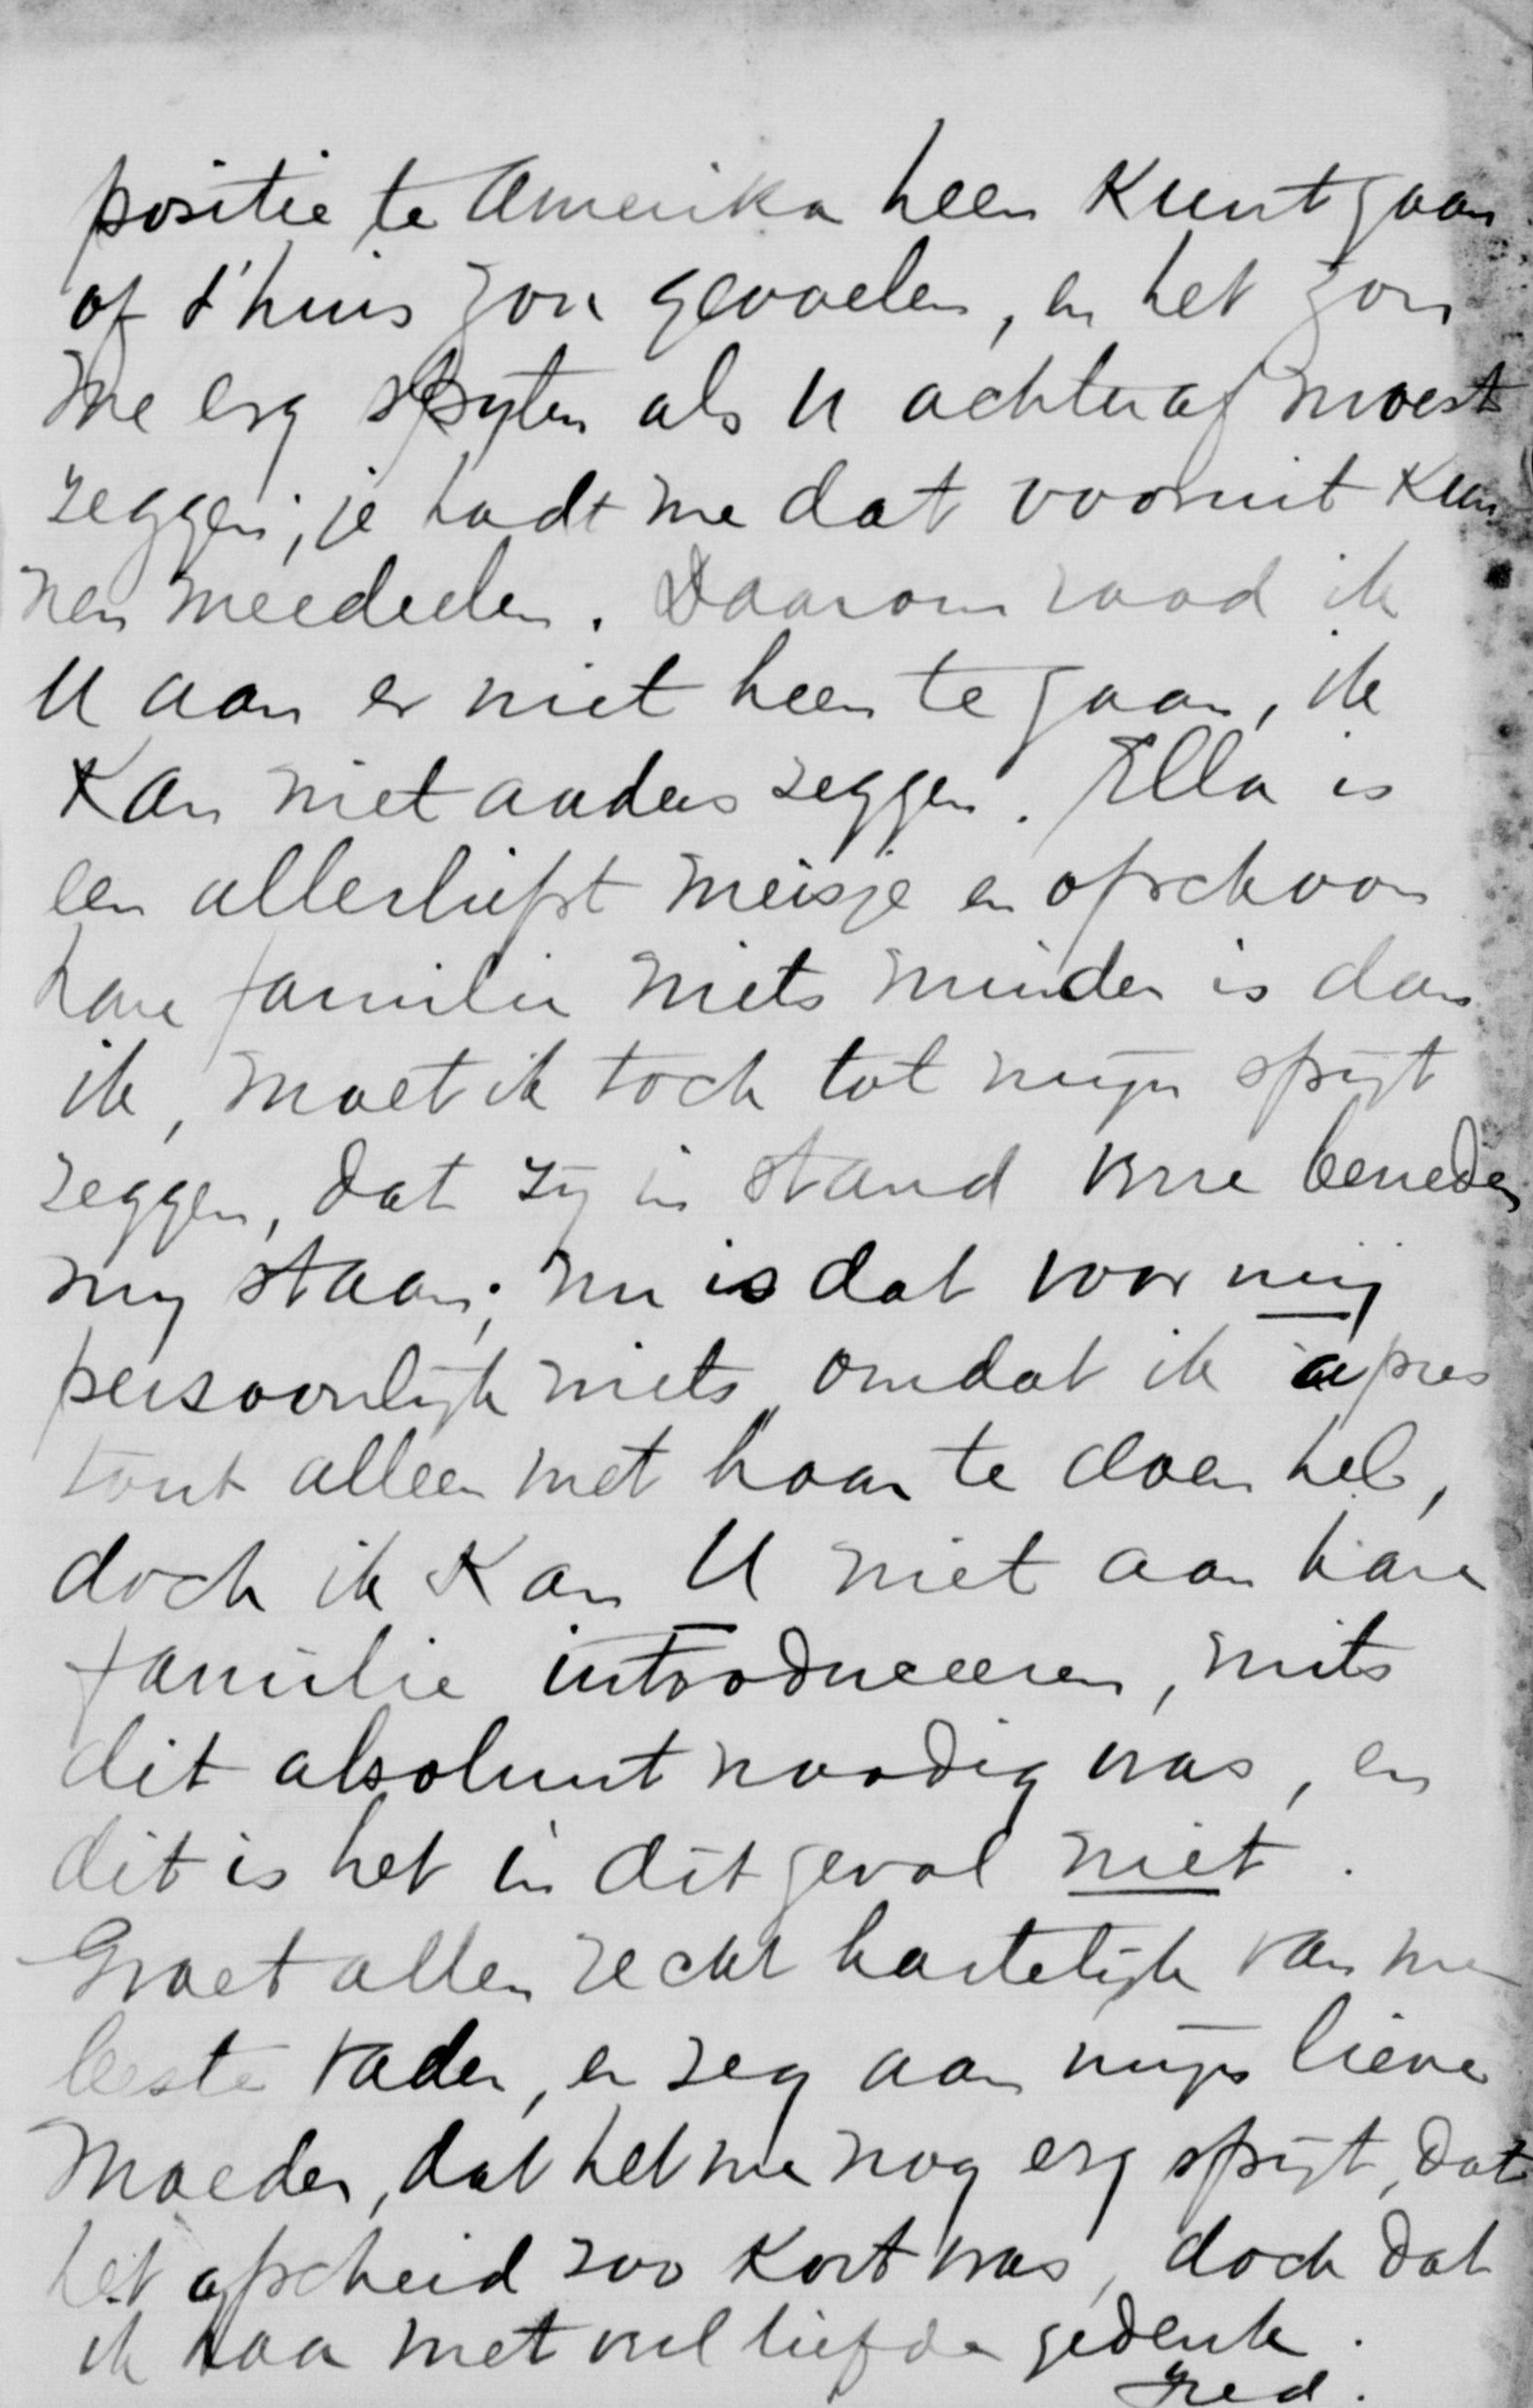 positie te Amerika heen kunt gaan
of t'huis zou gevoelen, en het zou
me erg spyten als U achteraf moest
zeggen; je hadt me dat vooruit kun
nen meedeelen. Daarom raad ik
U aan er niet heen te gaan, ik
kan niet anders zeggen. Ella is
een allerliefst meisje en ofschoon
hare familie niets minder is dan
ik, moet ik toch tot mijn spijt
zeggen, dat zij in stand verre beneden
my staan; nu is dat voor mij
persoonlijk niets omdat ik après
tout alleen met haar te doen heb,
doch ik kan U niet aan hare
familie introduceeren, mits
dit absoluut noodig was, en
dit is het in dit geval niet.
Groet allen recht hartelijk van me
beste vader, en zeg aan mijn lieve
Moeder, dat het me nog erg spijt, dat
het afscheid zoo kort was, doch dat
ik haar met veel liefde gedenk.
Fred.